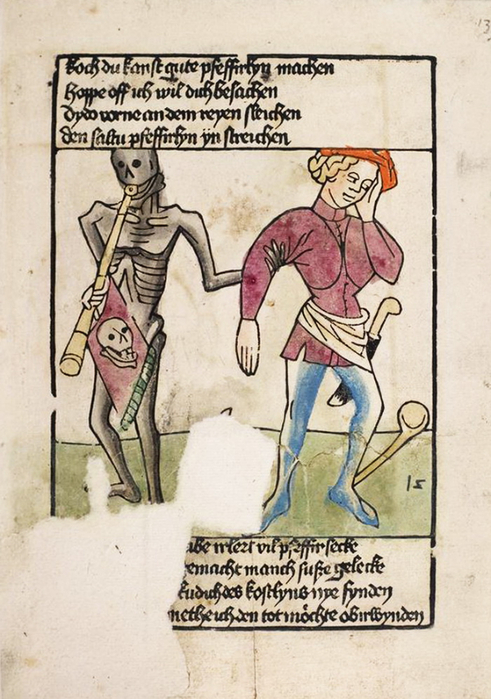 13
Koch du kanst gute pfeffirlyn machen
Hoppe off ich wil dich besachen
Dy do vorne an dem reyen sleichen
den saltu pfeffirlyn yn streichen
15
abe irlert vil pfeffirsecke
emacht manch suße gelecke
des kostlyns nye fynden
methe ich den tot möchte obirwynden